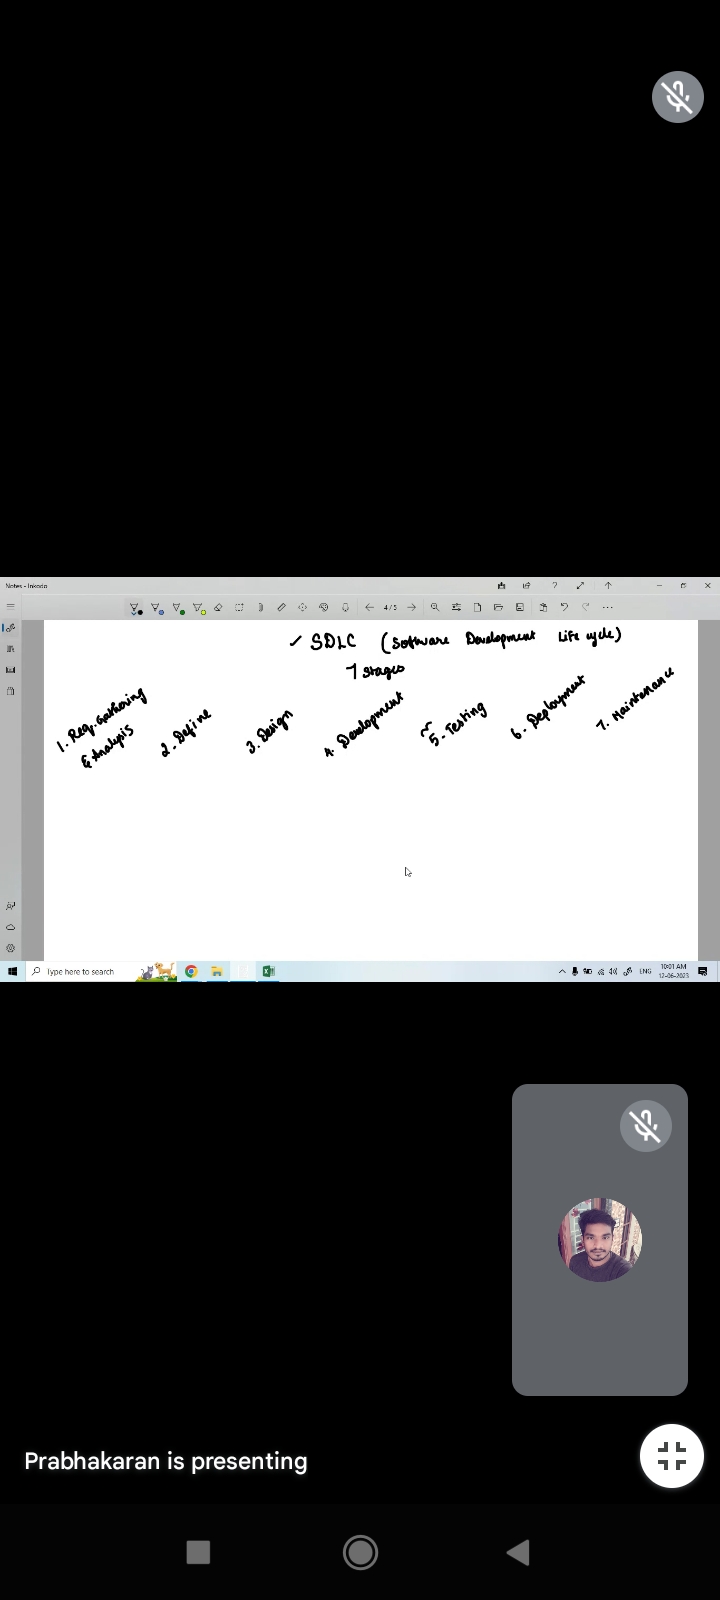 Notes - Inkodo
4/5
✓ SDLC (Software Development Life cycle)
7 stages
1. Req. Gathering
& Analysis
2. Define
3. Design
4. Development
5. Testing
6. Deployment
7. Maintenance
Type here to search
ENG
10:01 AM
12-06-2023
Prabhakaran is presenting